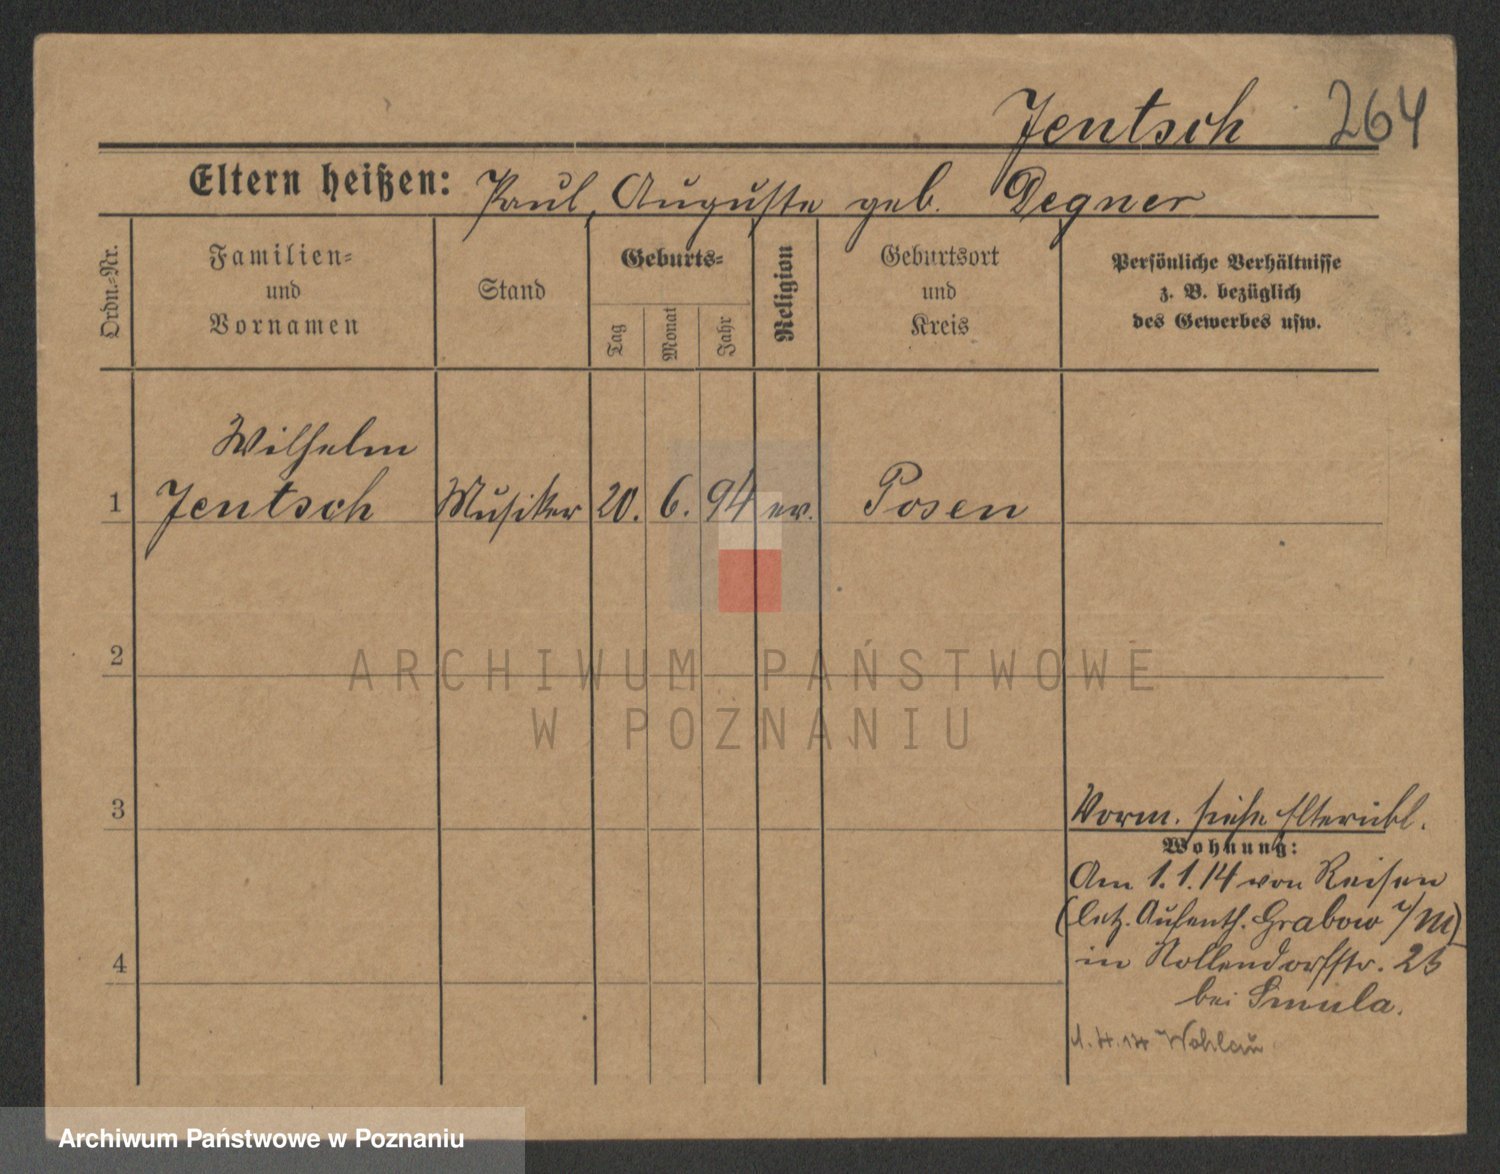 Jentsch 264
Eltern heißen: Paul, Auguste geb. Degner
Ordn.-Nr.
Familien-
und
Vornamen
Stand
Geburts-
Tag
Monat
Jahr
Religion
Geburtsort
und
Kreis
Persönliche Verhältnisse
z. B. bezüglich
des Gewerbes usw.
Wilhelm
1 Jentsch Musiker 20. 6. 94 ev. Posen
2
ARCHIWUM PAŃSTWOWE
W POZNANIU
3
Vorm. siehe
Wohnung:
Am 1.1.14 von Reisen
(letz. Aufenth. Grabow i/M)
4
in Nollendorfstr. 23
bei Smula.
Wohlau
Archiwum Państwowe w Poznaniu